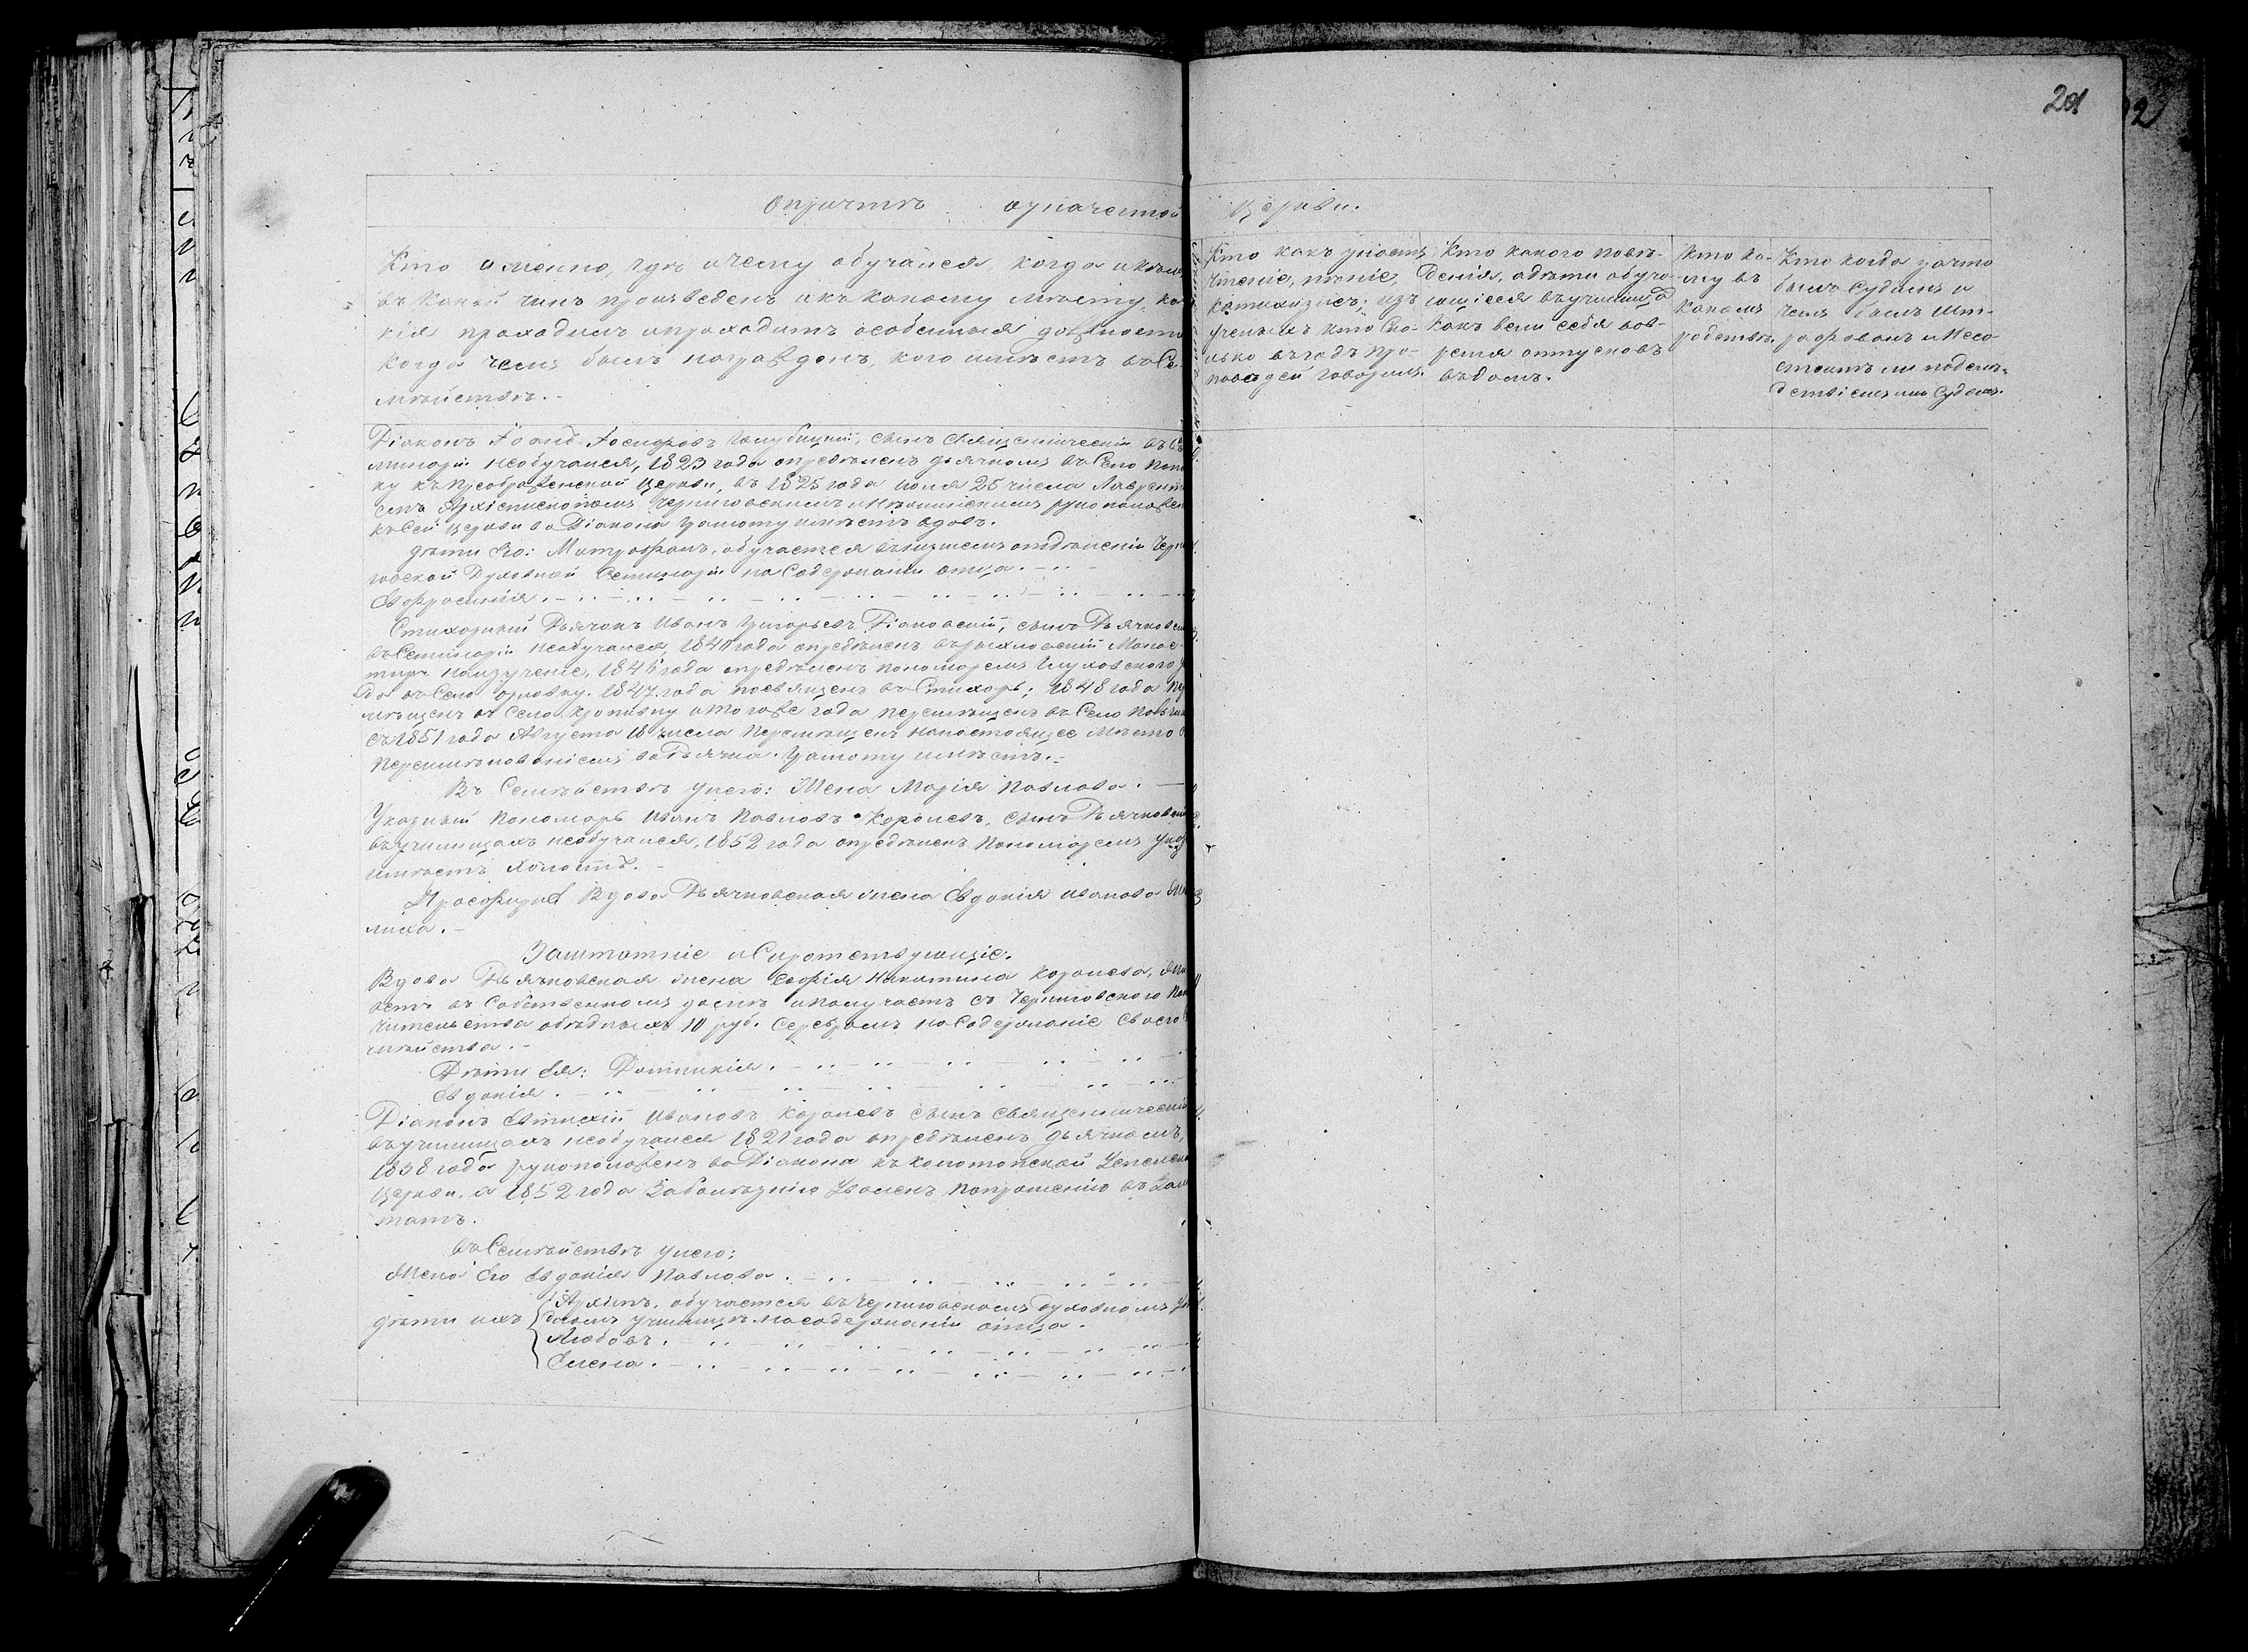 201
2
О причтѣ означенной церкви.
Кто именно, гдѣ и чему обучался, когда и кѣмъ
въ какой чинъ произведенъ и къ какому мѣсту, ка
кія проходилъ и проходитъ особенныя должности
когда чемъ былъ награжденъ, кого имѣетъ въ Се
мѣйствѣ.
Кто какъ знаетъ
чтеніе, пѣніе,
катихизисъ; изъ
ученыхъ кто ско-
лько въ годъ про-
повѣдей говорилъ.
Кто какого повѣ-
денія, а дѣти обуча-
ющіеся въ училищѣ
какъ вели себя вов-
ремя отпусковъ
въ домъ.
Кто ко-
му въ
какомъ
родствѣ.
Кто когда за что
былъ Судимъ и
чемъ былъ шт-
рафованъ и Несо-
стоитъ ли подслѣ-
дствіемъ или Судомъ.
Діаконъ Іоанъ Іосифовъ Голубицкій, сынъ Священническій въ Се
минаріи необучался, 1823 года опредѣленъ дьячкомъ въ Село
ку къ Преображенской Церкви, въ 1825 года Іюля 25 числа Лаврент
емъ Архіепископомъ Черниговскимъ и Нѣжинскимъ рукоположен
къ сей церкви во Діакона Грамоту имѣетъ вдовъ.
Дѣти Его: Митрофанъ, обучается въ низшемъ отдѣленіи Черни
говской Духовной Семинаріи на Содержаніи отца.
Евфросинія.
Стихарный Дьячокъ Иванъ Григорьевъ Діаковскій, сынъ Дьячковск
въ Семинаріи необучался, 1840 года опредѣленъ въ Рыхловскій Монас-
тырь на изученіе, 1846 года опредѣленъ пономаремъ Глуховского
да въ Село Орловку. 1847 года посвященъ въ Стихарь; 1848 года
мѣщенъ въ Село Кропивну и того же года перемѣщенъ въ Село
съ 1851 года Августа 18 числа Перемѣщенъ на настоящее Мѣсто
Переименованіемъ во Дьячка. Грамоту имѣетъ.
Въ Семѣйствѣ у него: Жена Марія Павлова.
Указный Пономарь Иванъ Павловъ Королевъ, сынъ Дьячковскій
въ училищахъ необучался, 1852 года опредѣленъ Пономаремъ Указ
имѣетъ холостъ.
Просфирня Вдова Дьячковская жена Евдокія Иванова
лиха.
Заштатніе и Сиротствующіе.
Вдова Дьячковская жена Софія Никитина Королева, жи
ветъ въ Собственномъ домѣ и получаетъ съ Черниговского По
чительства обѣдныхъ 10 руб. Серебромъ на Содержаніе Своего
мѣйства.
Дѣти Ея: Домникія.
Евдокія.
Діаконъ Евтихій Ивановъ Королевъ сынъ Священническій
въ училищахъ необучался 1821 года опредѣленъ дьячкомъ,
1838 года рукоположенъ во Діакона къ Конотопской Успенск
Церкви, а 1852 года За болѣзнію Уволенъ по прошенію въ Заш
татъ.
Въ Семѣйствѣ у него:
Жена Его Евдокія Павлова.
дѣти ихъ
Архипъ, обучается въ Черниговскомъ духовномъ Уѣ
здномъ училищѣ на содержаніи отца.
Любовь.
Елена.